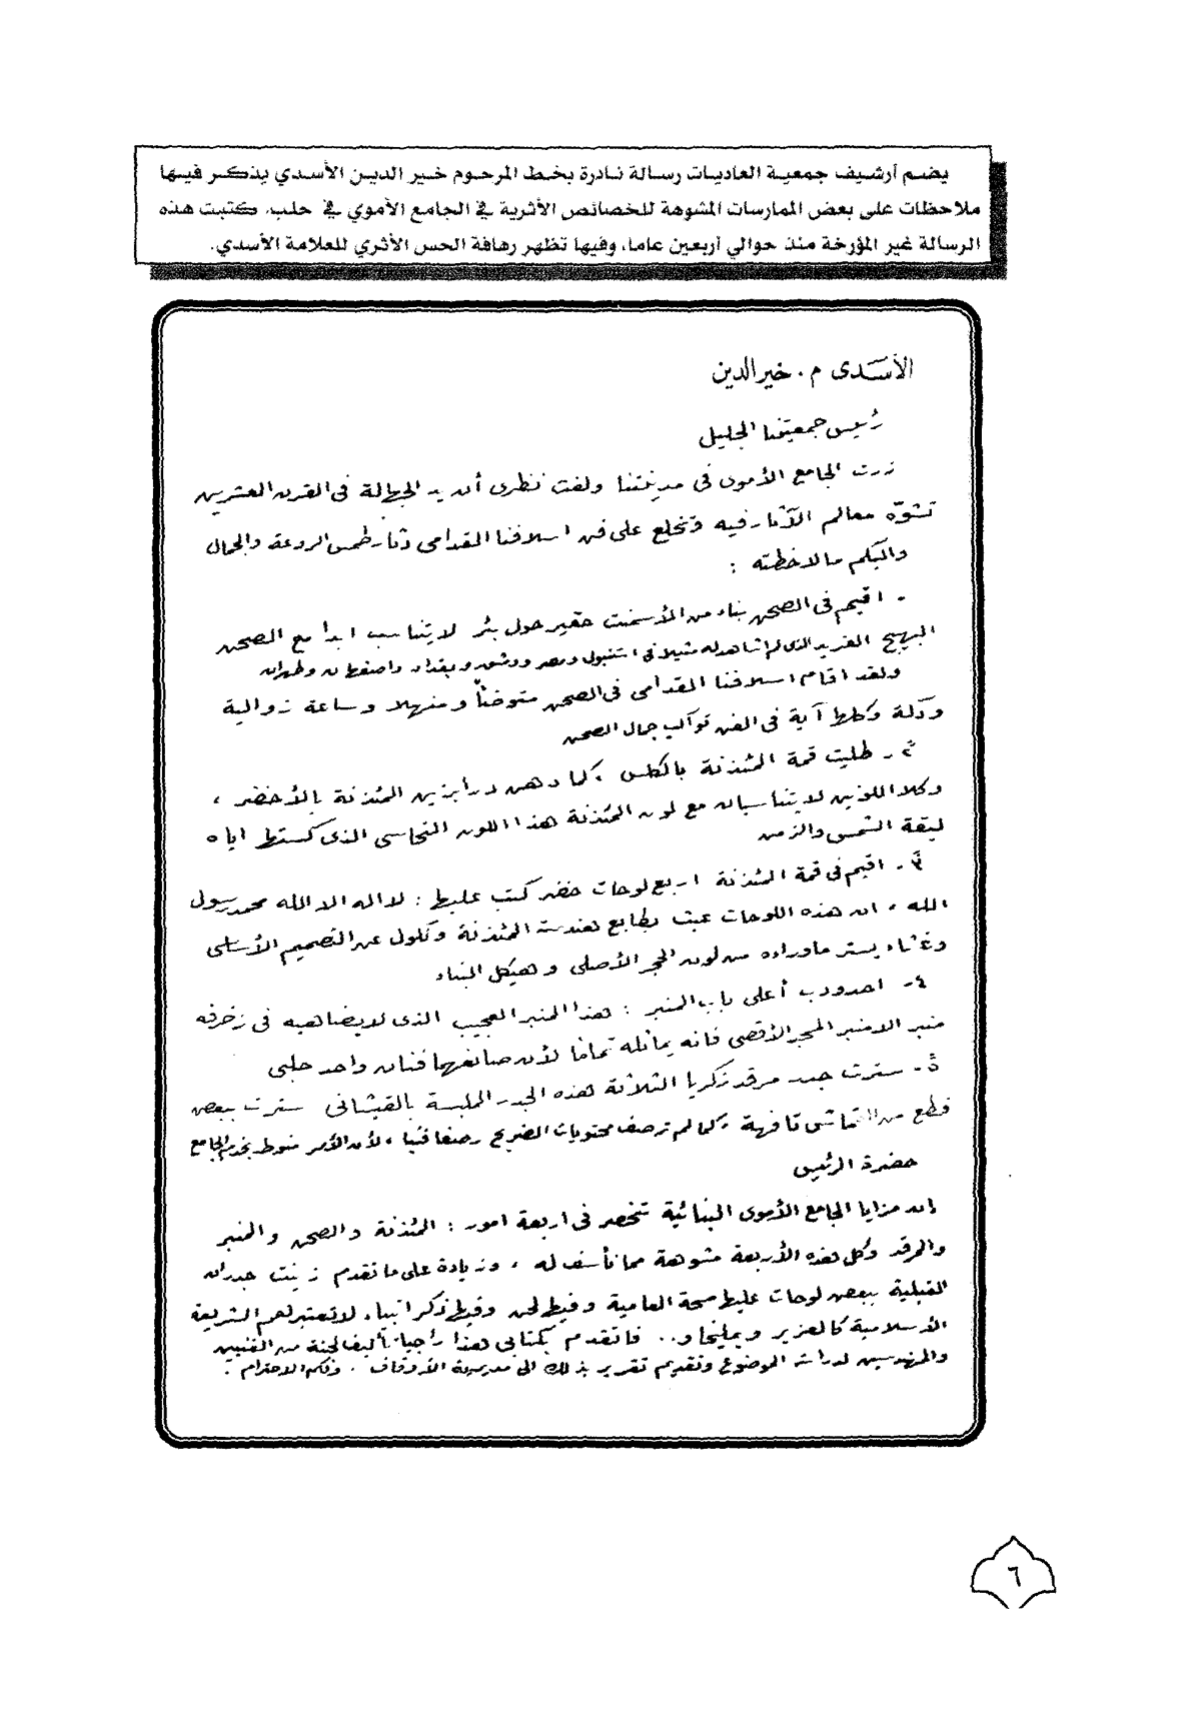 يضم أرشيف جمعية العاديات رسالة نادرة بخط المرحوم خير الدين الأسدي يذكر فيها
ملاحظات على بعض الممارسات المشوهة للخصائص الأثرية في الجامع الأموي في حلب. كتبت هذه
الرسالة غير المؤرخة منذ حوالي أربعين عاما، وفيها تظهر رهافة الحس الأثري للعلامة الأسدي.
الأسدى م. خير الدين
رئيس جمعيتنا الجليل
زرت الجامع الأموى فى مدينتنا ولفت نظرى أن يد الجهالة فى القرن العشرين
تشوّه معالم الآثار فيه وتخلع على فن اسلافنا القدامى دثار طمس الروعة والجمال
واليكم ما لاحظته :
- اقيم فى الصحن بناء من الأسمنت حقير حول بئر لا يتناسب ابدا مع الصحن
البهيج الفريد الذى لم اشاهد له مثيلا فى استنبول ومصر ودمشق وبغداد واصفهان وطهران
ولقد اقام اسلافنا القدامى فى الصحن متوضئاً ومنهلا وساعة زوالية
ودكة وكلها آية فى الفن تواكب جمال الصحن
٢ـ طليت قمة المئذنة بالكلس ، كما دهن درابزين المئذنة بالأخضر ،
وكلا اللونين لا يتناسبان مع لون المئذنة هذا اللون النحاسى الذى اياه
ليقة الشمس والزمن
٣ـ اقيم فى قمة المئذنة اربع لوحات خضر كتب عليها : لا اله الا الله محمد رسول
الله ، ان هذه اللوحات عبث بطابع هندسة المئذنة عن التصميم الأساسى
وغشاء يستر ما وراءه من لون الحجر الأصلى وهيكل البناء
٤ـ احدودب أعلى باب المنبر : هذا المنبر العجيب الذى لا يضاهيه فى زخرفه
منبر الا منبر المسجد الأقصى فانه يماثله تماما لأن صانعهما فنان واحد حلبى
٥ـ سترت جدر مرقد زكريا الثلاثة هذه الجدر الملبسة بالقيشانى سترت ببعض
قطع من القماش تافهة ، كما لم ترصف محتويات الضريح رصفا فنيا ، لأن الأمر منوط بخدم الجامع
حضرة الرئيس
إن مزايا الجامع الأموى البنائية تنحصر فى اربعة امور : المئذنة والصحن والمنبر
والمرقد وكل هذه الأربعة مشوهة مما نأسف له ، وزيادة على ما تقدم زينت جدران
القبلية ببعض لوحات عليها مسحة العامية وفيها لحن وفيها ذكر انبياء لا تعتبرهم الشريعة
الأسلامية كالعزير ويمليخا و.. فاتقدم بكتابى هذا راجيا تأليف لجنة من الفنيين
والمهندسين لدراسة الموضوع وتقديم تقرير بذلك الى مديرية الأوقاف . ولكم الاحترام .
٦